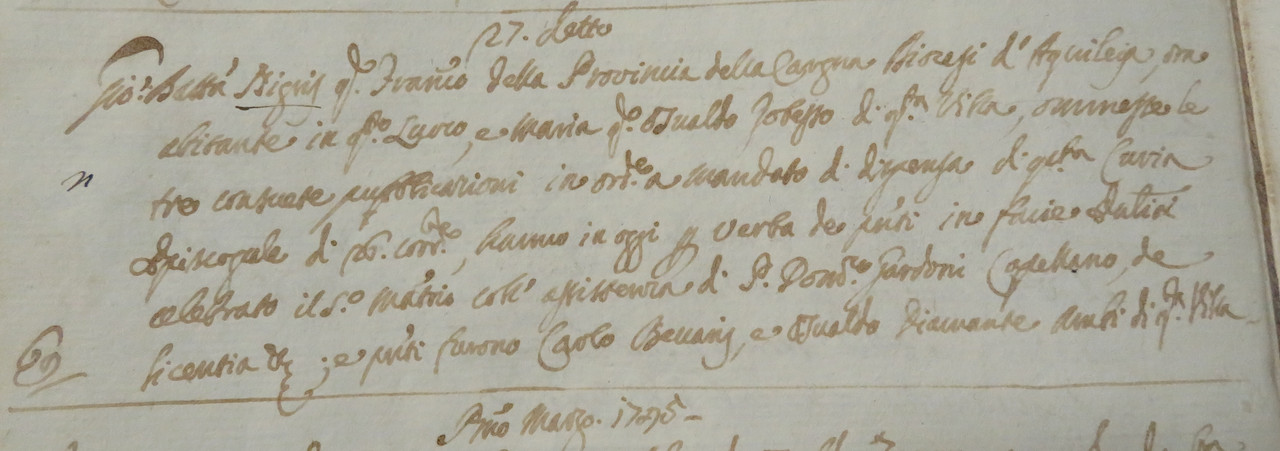 27. detto
Gio: Batta' Bignis q.m Fran.co della Provincia della Cargna Diocesi d'Aquileja, ora
abitante in q.sto Luoco, e Maria q.m Osualdo di q.sta Villa, ommesse le
n tre consuete pubblicazioni in ord.e a mandato di dispensa di q.sta Curia
Episcopale di 26. corr.te, hanno in oggi p verba de p'nti in facie
celebrato il S.o Mat'rio coll' assistenza di P. Dom.co Gardoni Capellano, de
69 licentia &; e p'nti furono Carlo, e Osualdo Diamante ambi di q.sta Villa
P'mo Marzo. 1775